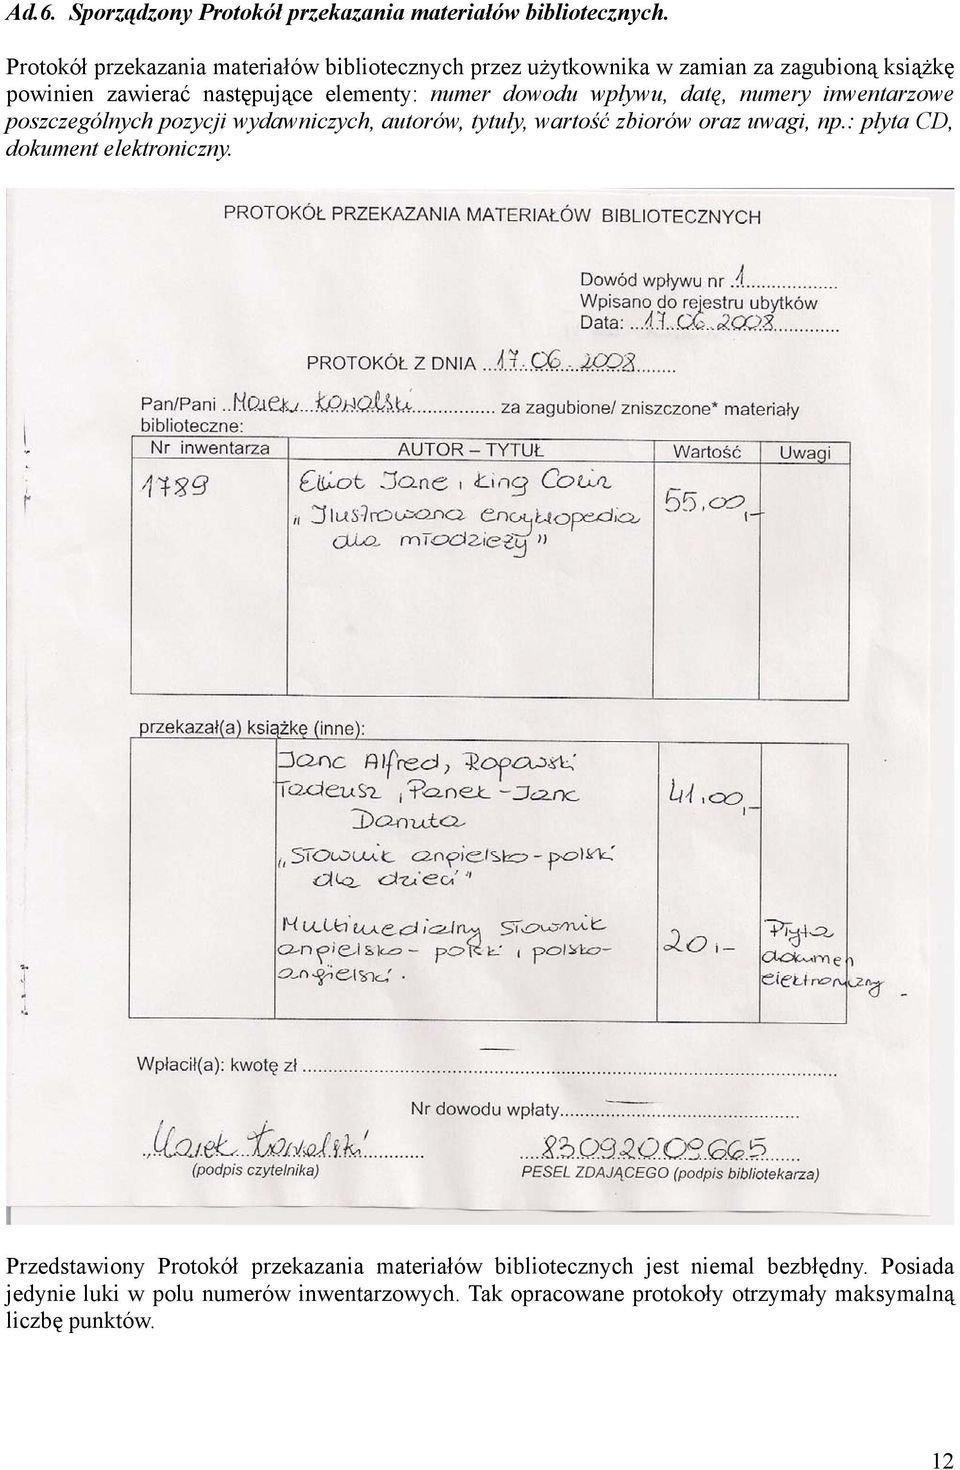 Ad.6. Sporządzony Protokół przekazania materiałów bibliotecznych.
Protokół przekazania materiałów bibliotecznych przez użytkownika w zamian za zagubioną książkę
powinien zawierać następujące elementy: numer dowodu wpływu, datę, numery inwentarzowe
poszczególnych pozycji wydawniczych, autorów, tytuły, wartość zbiorów oraz uwagi, np.: płyta CD,
dokument elektroniczny.
PROTOKÓŁ PRZEKAZANIA MATERIAŁÓW BIBLIOTECZNYCH
Dowód wpływu nr .1....................
Wpisano do rejestru ubytków
Data: ...17.06.2008.............
PROTOKÓŁ Z DNIA ...17.06.2008........
Pan/Pani ..Marek....Kowalski................ za zagubione/ zniszczone* materiały
biblioteczne:
Nr inwentarza AUTOR – TYTUŁ Wartość Uwagi
1789 Elliot Jane, King Colin 55,00,-
„Ilustrowana encyklopedia
dla młodzieży"
przekazał(a) książkę (inne):
Janc Alfred, Ropawski
Tadeusz, Panek - Janc 41,00,-
Danuta
„Słownik angielsko-polski
dla dzieci"
Multimedialny słownik 20,- Płyta
angielsko-polski, polsko- dokumen
angielski. elektroniczny
Wpłacił(a): kwotę zł ........................................ — ........................................
Nr dowodu wpłaty........ — ..............................
..Marek..Kowalski............ ....83092009665......
(podpis czytelnika) PESEL ZDAJĄCEGO (podpis bibliotekarza)
Przedstawiony Protokół przekazania materiałów bibliotecznych jest niemal bezbłędny. Posiada
jedynie luki w polu numerów inwentarzowych. Tak opracowane protokoły otrzymały maksymalną
liczbę punktów.
12